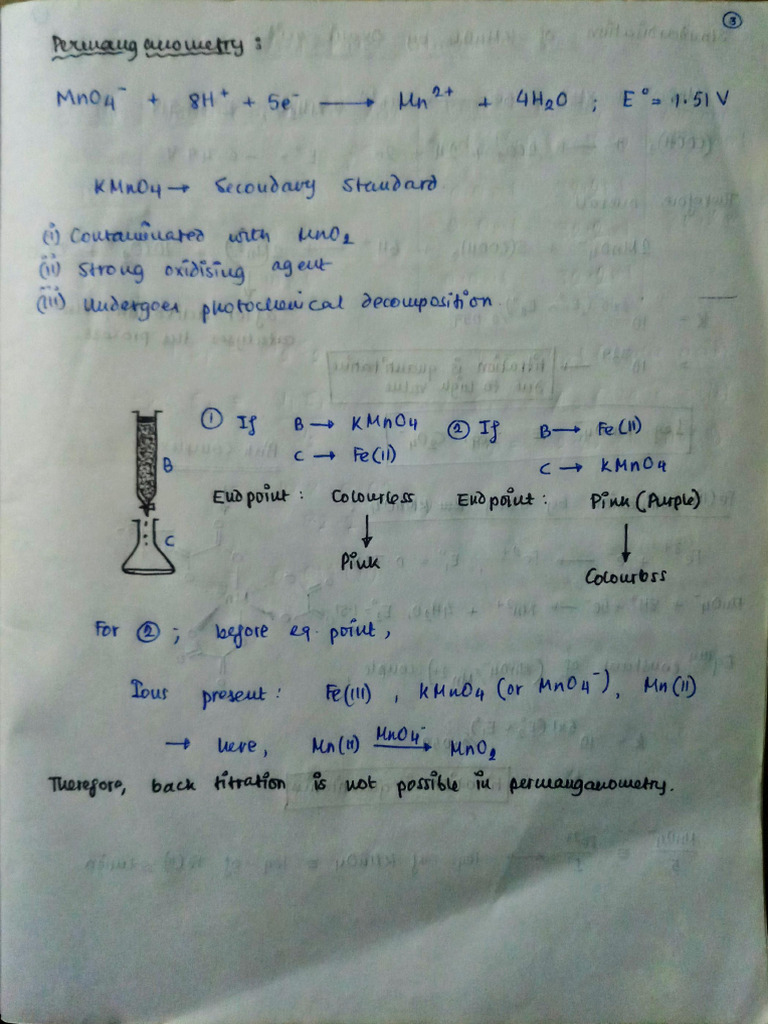 ③
Permanganometry :
MnO4⁻ + 8H⁺ + 5e⁻ → Mn²⁺ + 4H2O ; E° = 1.51 V
KMnO4 → Secondary Standard
(i) Contaminated with MnO2
(ii) Strong oxidising agent
(iii) Undergoes photochemical decomposition
① If B → KMnO4 ② If B → Fe(II)
B
C → Fe(II) C → KMnO4
Endpoint : Colourless Endpoint : Pink (Purple)
C
↓ ↓
Pink
Colourless
For ② ; before eq. point,
Ions present : Fe(III) , KMnO4 (or MnO4⁻), Mn(II)
→ Here, Mn(II) MnO4⁻ → MnO2
Therefore, back titration is not possible in permanganometry.